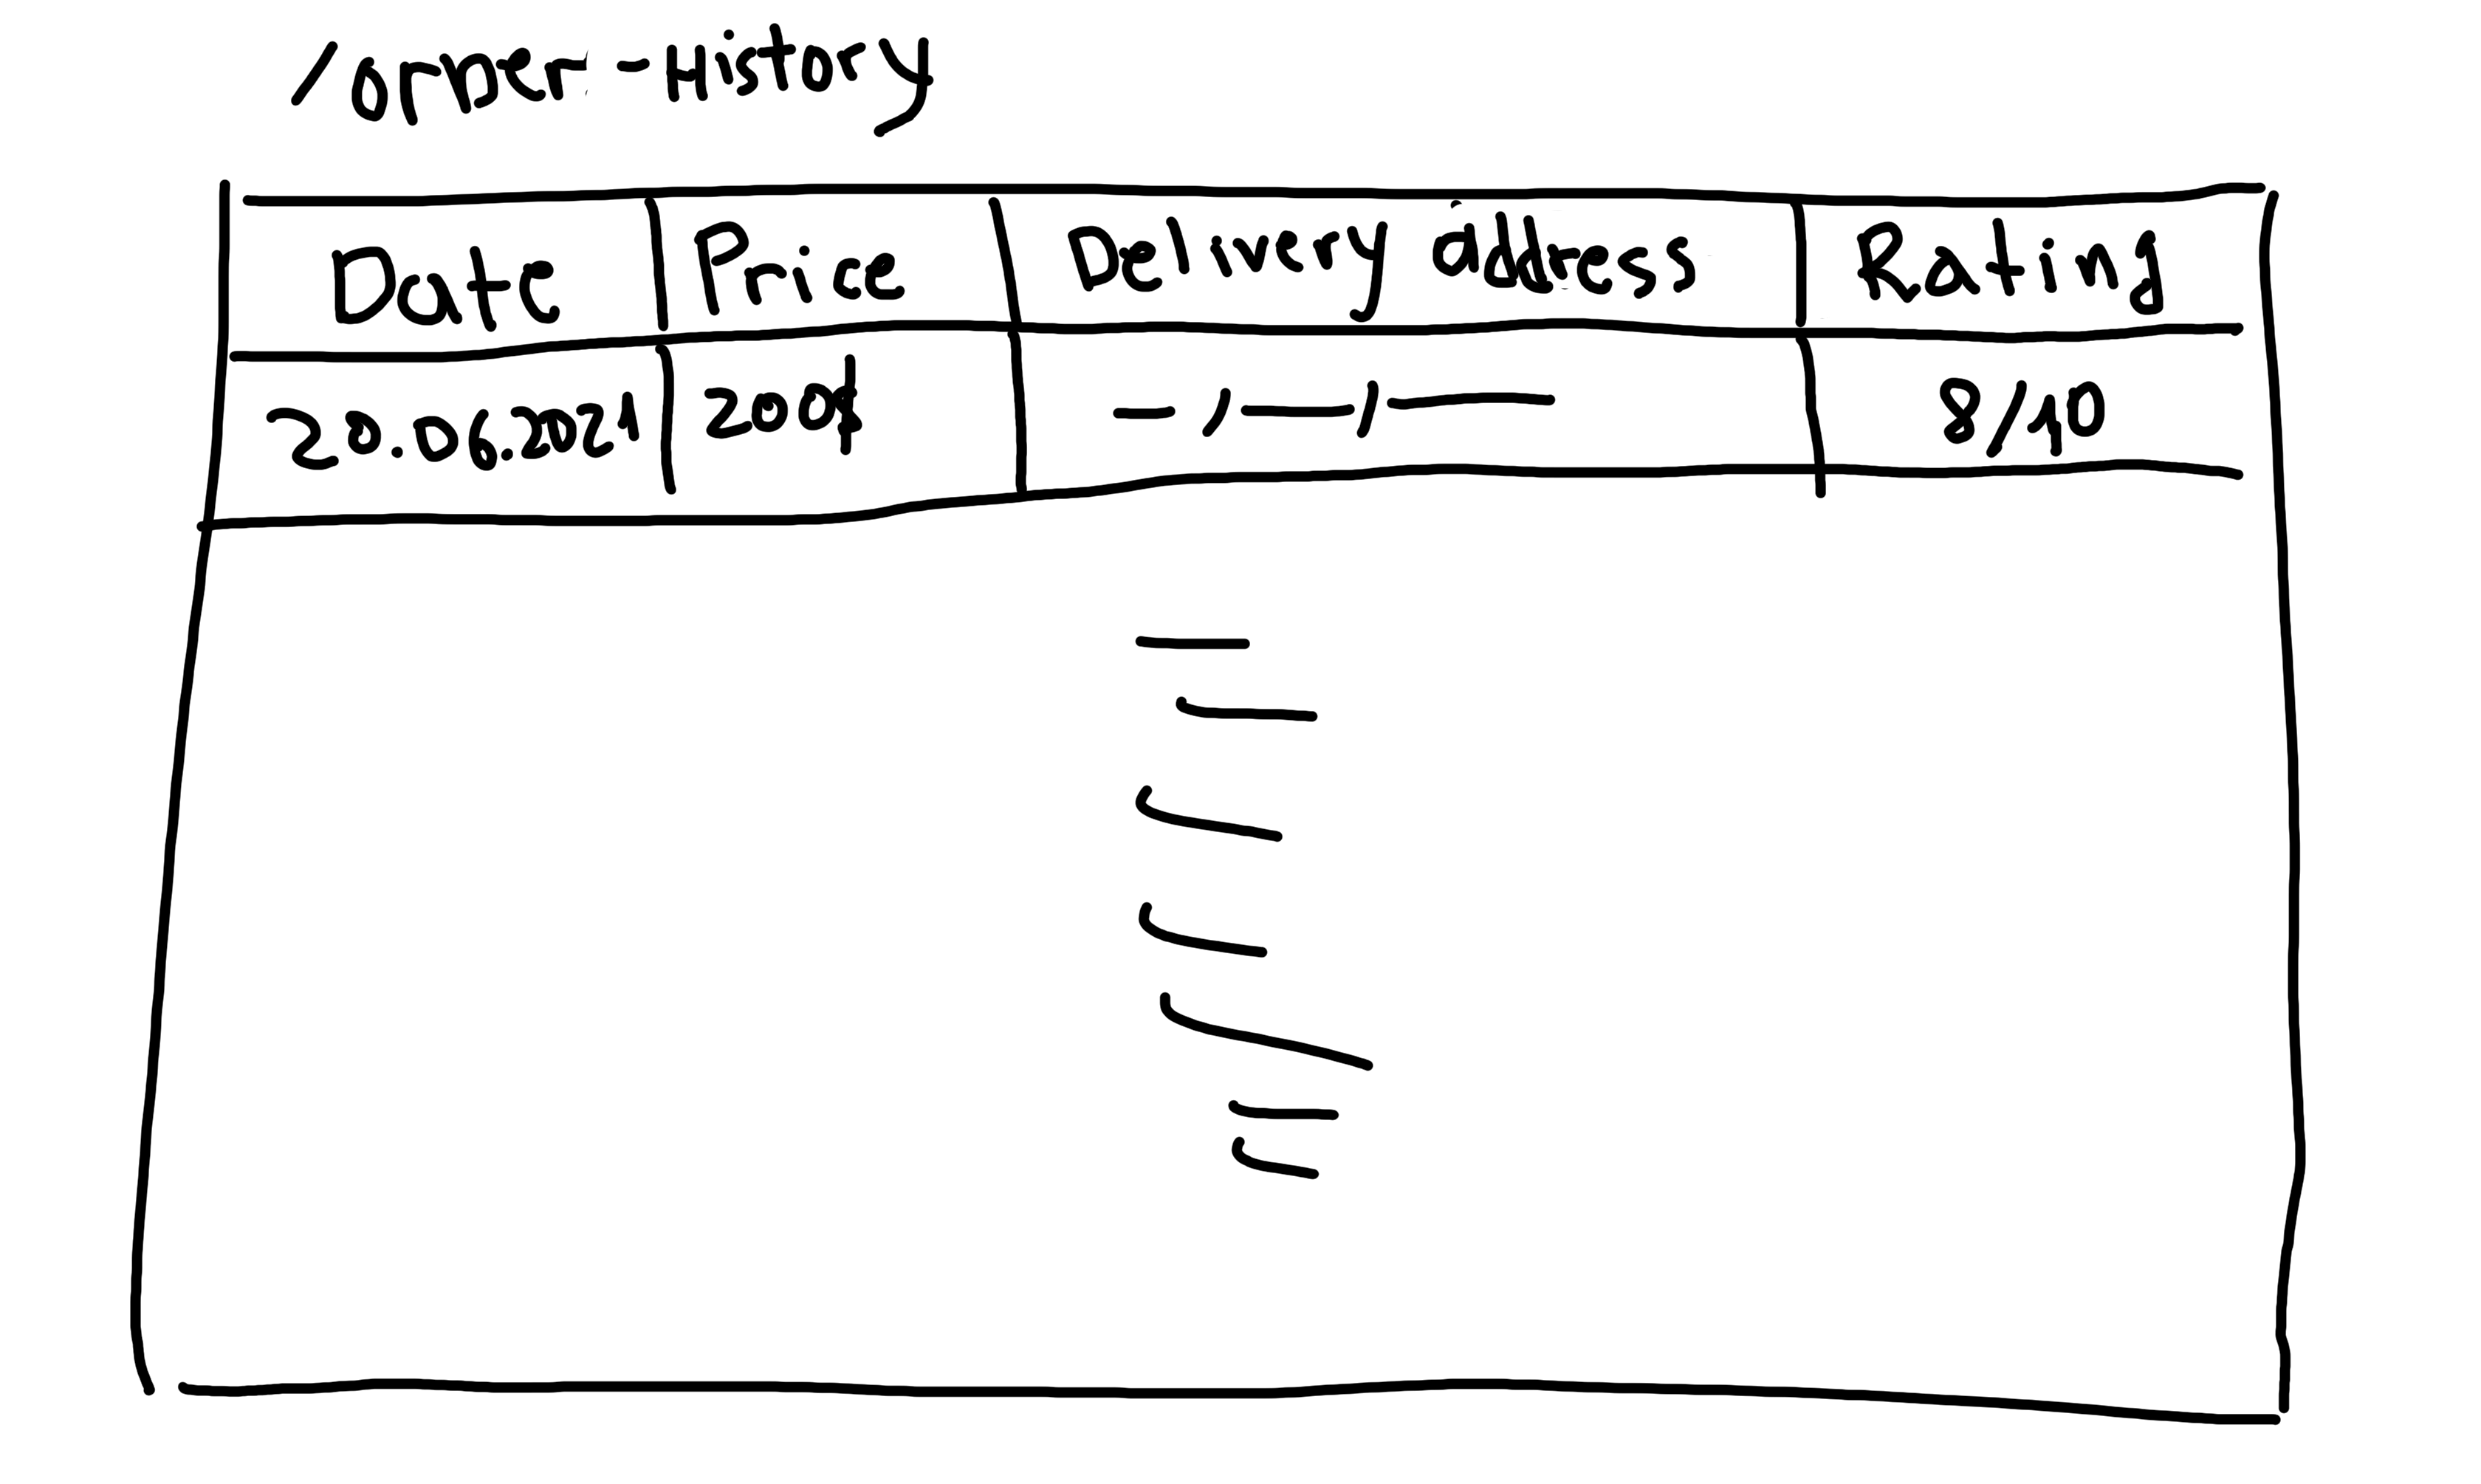 /order-History
Date Price Delivery address Rating
20.06.2021 200$ - / - / - 8/10